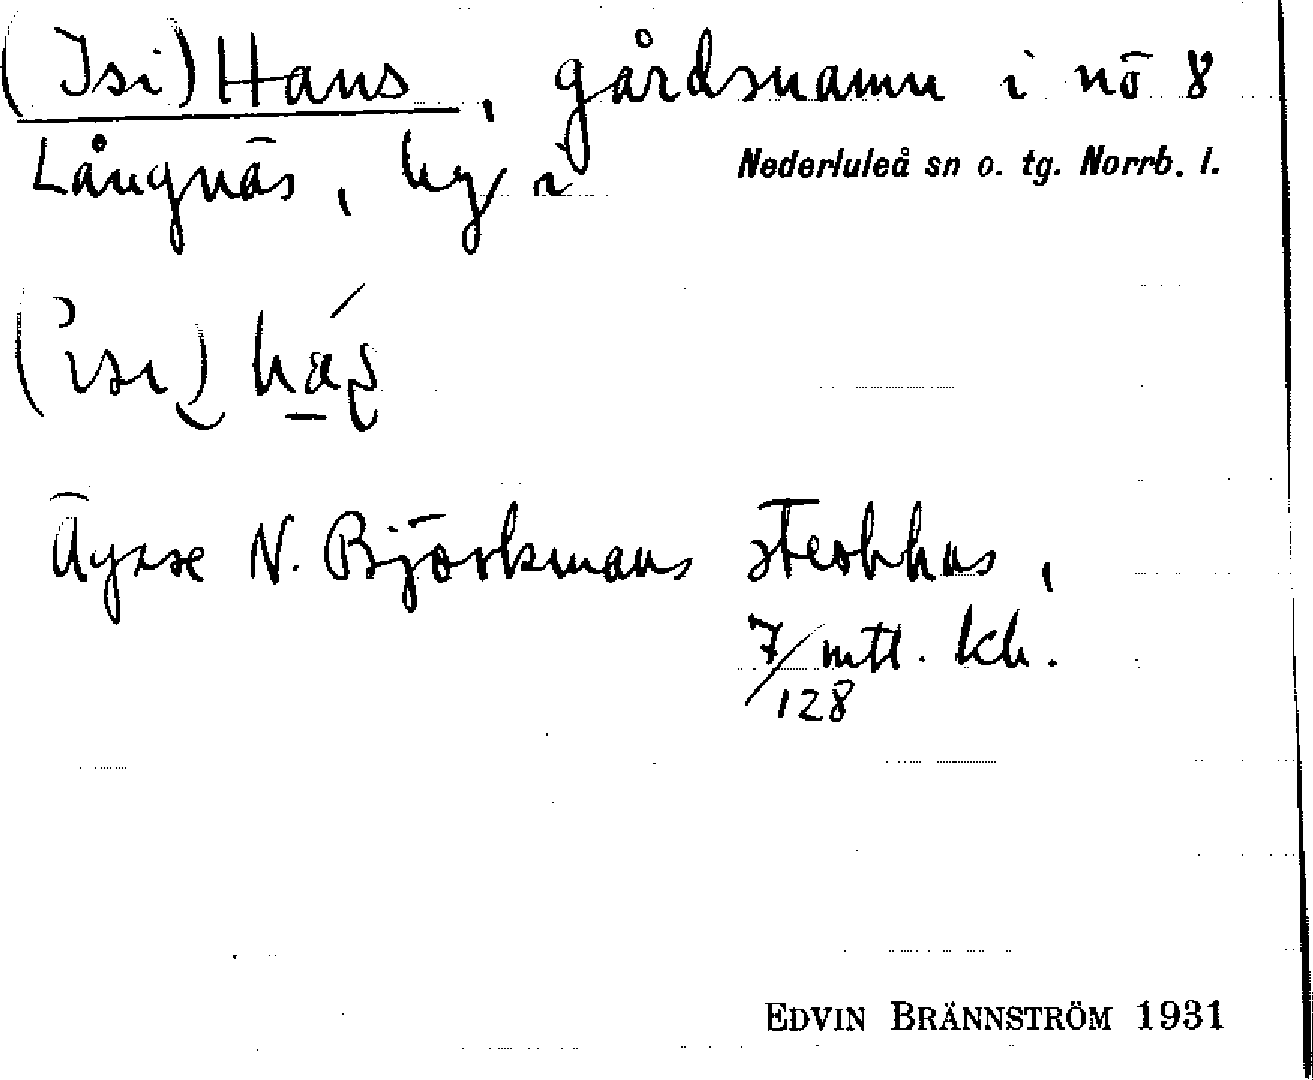 (Isi) Hans, gårdsnamn i nö 8
Långnäs, by i Nederluleå sn o. tg. Norrb. l.
Ägare N. Björkmans sterbhus,
7/128 mtl. kh.
EDVIN BRÄNNSTRÖM 1931